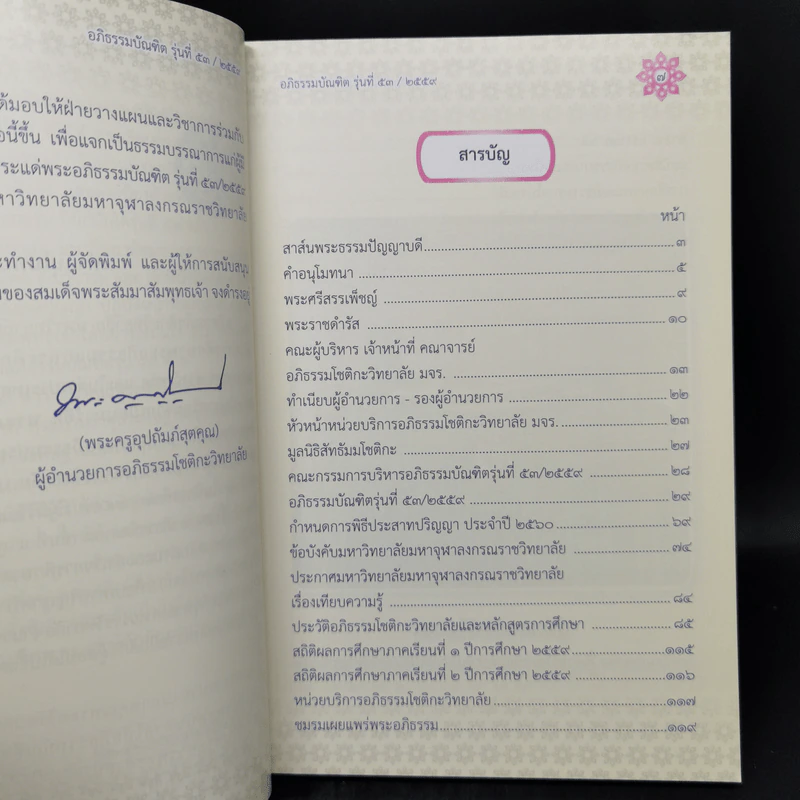 อภิธรรมบัณฑิต รุ่นที่ ๕๓ / ๒๕๕๙
ด้มอบให้ฝ่ายวางแผนและวิชาการร่วมกับ
อนี้ขึ้น เพื่อแจกเป็นธรรมบรรณาการแก่ผู้มี
ระแด่พระอภิธรรมบัณฑิต รุ่นที่ ๕๓/๒๕๕๙
หาวิทยาลัยมหาจุฬาลงกรณราชวิทยาลัย
ะทำงาน ผู้จัดพิมพ์ และผู้ให้การสนับสนุน
ของสมเด็จพระสัมมาสัมพุทธเจ้า จงดำรงอยู่
(พระครูอุปถัมภ์สุตคุณ)
ผู้อำนวยการอภิธรรมโชติกะวิทยาลัย
อภิธรรมบัณฑิต รุ่นที่ ๕๓ / ๒๕๕๙ ๗
สารบัญ
หน้า
สาส์นพระธรรมปัญญาบดี ๓
คำอนุโมทนา ๕
พระศรีสรรเพ็ชญ์ ๙
พระราชดำรัส ๑๐
คณะผู้บริหาร เจ้าหน้าที่ คณาจารย์
อภิธรรมโชติกะวิทยาลัย มจร. ๑๓
ทำเนียบผู้อำนวยการ - รองผู้อำนวยการ ๒๒
หัวหน้าหน่วยบริการอภิธรรมโชติกะวิทยาลัย มจร. ๒๓
มูลนิธิสัทธัมมโชติกะ ๒๗
คณะกรรมการบริหารอภิธรรมบัณฑิตรุ่นที่ ๕๓/๒๕๕๙ ๒๘
อภิธรรมบัณฑิตรุ่นที่ ๕๓/๒๕๕๙ ๒๙
กำหนดการพิธีประสาทปริญญา ประจำปี ๒๕๖๐ ๖๙
ข้อบังคับมหาวิทยาลัยมหาจุฬาลงกรณราชวิทยาลัย ๗๔
ประกาศมหาวิทยาลัยมหาจุฬาลงกรณราชวิทยาลัย
เรื่องเทียบความรู้ ๘๔
ประวัติอภิธรรมโชติกะวิทยาลัยและหลักสูตรการศึกษา ๘๕
สถิติผลการศึกษาภาคเรียนที่ ๑ ปีการศึกษา ๒๕๕๙ ๑๑๕
สถิติผลการศึกษาภาคเรียนที่ ๒ ปีการศึกษา ๒๕๕๙ ๑๑๖
หน่วยบริการอภิธรรมโชติกะวิทยาลัย ๑๑๗
ชมรมเผยแพร่พระอภิธรรม ๑๑๙